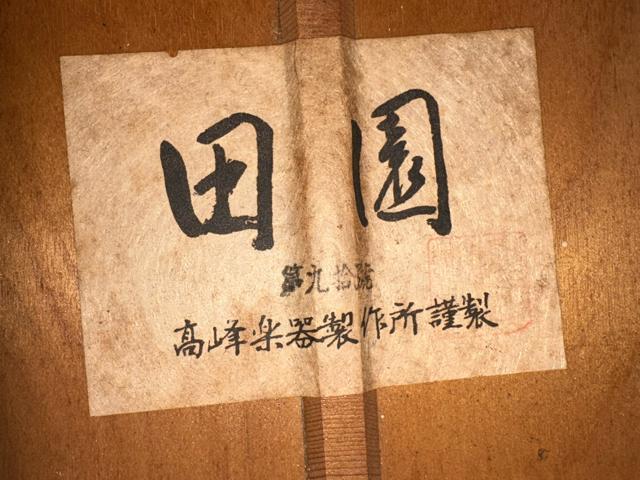 田園
第九拾號
高峰楽器製作所謹製